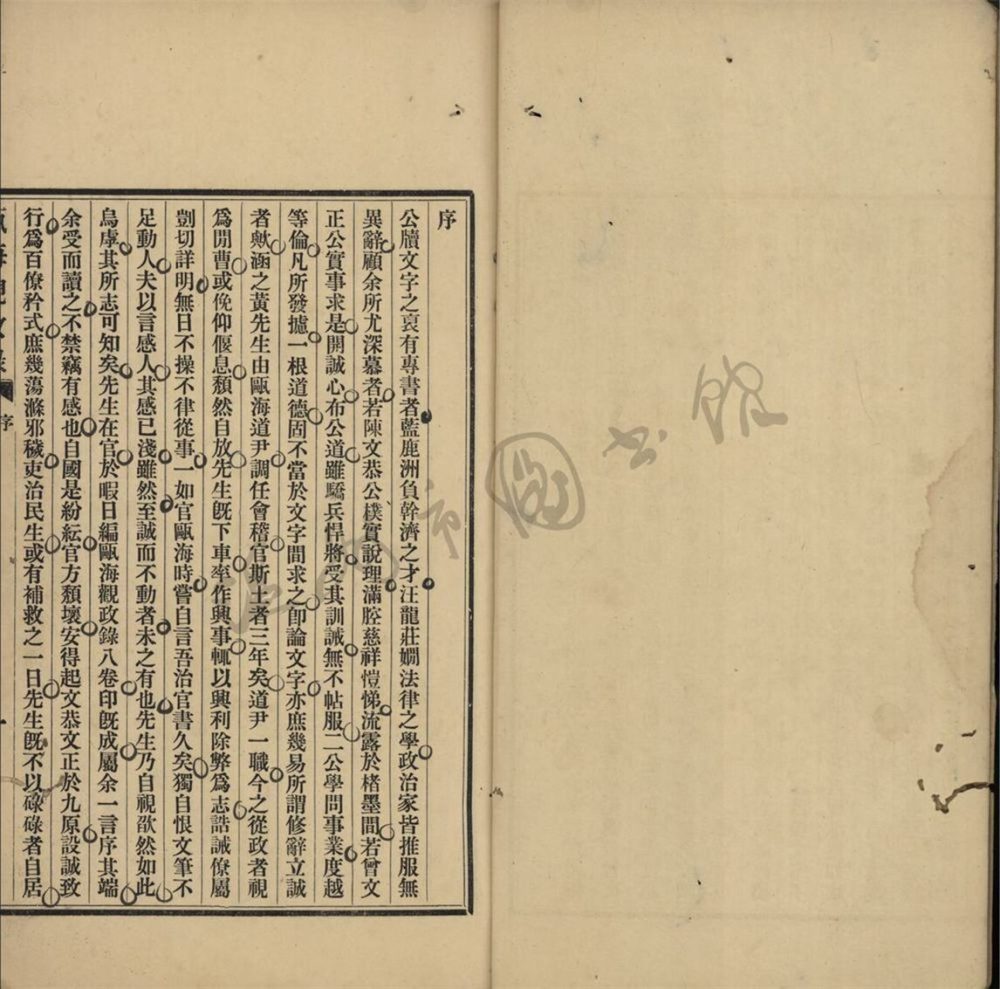 序
公牘文字之裒有專書者藍鹿洲負幹濟之才汪龍莊嫺法律之學政治家皆推服無
異辭顧余所尤深慕者若陳文恭公樸實說理滿腔慈祥愷悌流露於楮墨間若曾文
正公實事求是開誠心布公道雖驕兵悍將受其訓誡無不帖服二公學問事業度越
等倫凡所發攄一根道德固不當於文字間求之卽論文字亦庶幾易所謂修辭立誠
者歟涵之黃先生由甌海道尹調任會稽官斯土者三年矣道尹一職今之從政者視
爲閒曹或俛仰偃息頹然自放先生旣下車率作興事輒以興利除弊爲志誥誡僚屬
剴切詳明無日不操不律從事一如官甌海時嘗自言吾治官書久矣獨自恨文筆不
足動人夫以言感人其感已淺雖然至誠而不動者未之有也先生乃自視欿然如此
烏虖其所志可知矣先生在官於暇日編甌海觀政錄八卷印旣成屬余一言序其端
余受而讀之不禁竊有感也自國是紛紜官方頹壞安得起文恭文正於九原設誠致
行爲百僚矜式庶幾蕩滌邪穢吏治民生或有補救之一日先生旣不以碌碌者自居
序
一
市圖書館